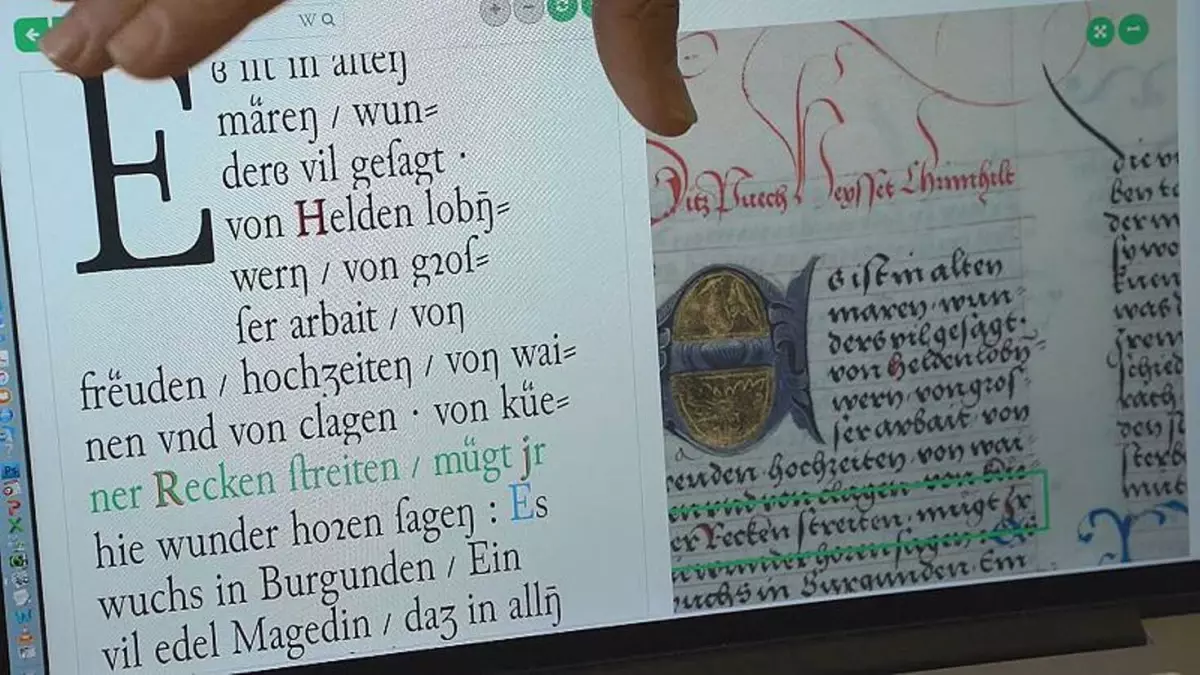 W
Eß iſt in alteŋ
märeŋ / wun⸗
derß vil geſagt ·
von Helden lobŋ̄⸗
werŋ / von gꝛoſ⸗
ſer arbait / voŋ
frëuden / hochʒeiteŋ / voŋ wai⸗
nen vnd von clagen · von küe⸗
ner Recken ſtreiten / mügt jr
hie wunder hoꝛen ſageŋ : Es
wuchs in Burgunden / Ein
vil edel Magedin / daʒ in allŋ̄
Ditz Puech Heyſſet Chrimhilt
Eß iſt in alten
maren · wun⸗
derß vil geſagt ·
von Helden lobŋ̄⸗
wern · von gꝛoſ⸗
ſer arbait · von
reuden · hochzeiten · von wai
nen vnd von clagen · von küe
er Recken ſtreiten · mügt Jr
wunder hoꝛen ſagen · Es
wuchs in Burgunden · Ein
die
der
was
den